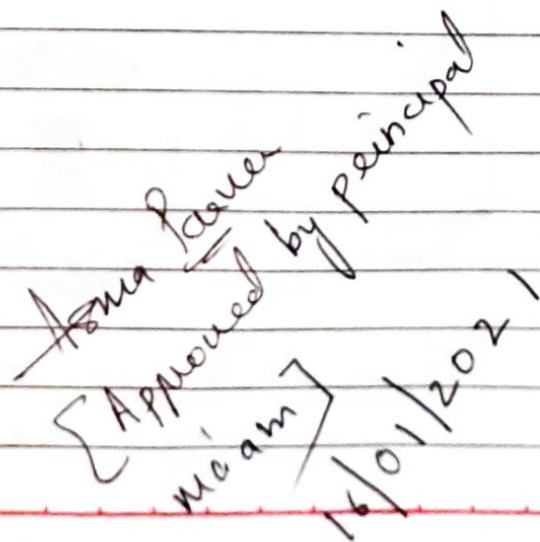 Asma
[Approved by principal
ma'am]
16/01/2021